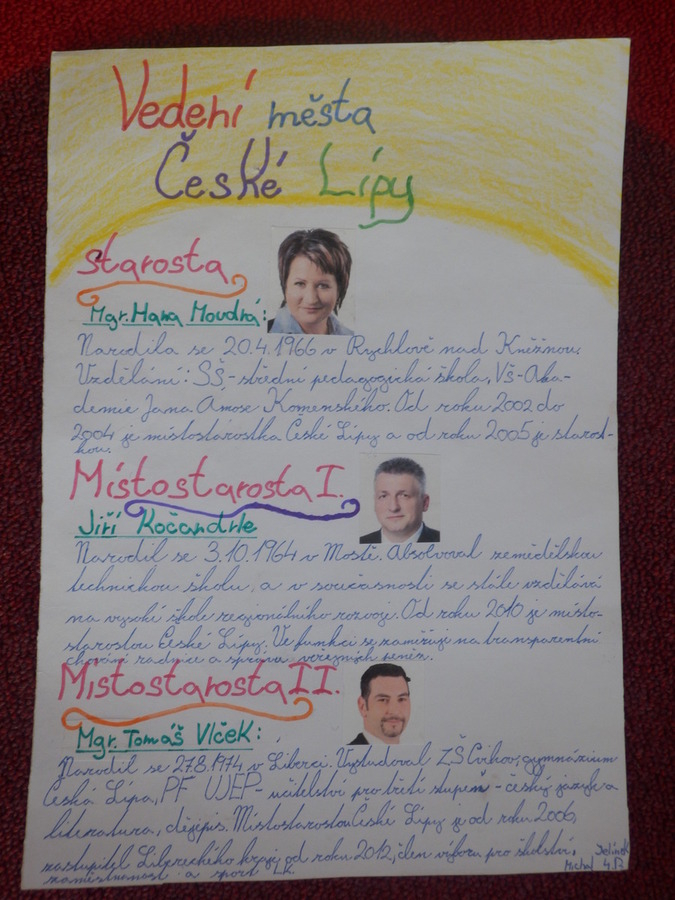 Vedení města
České Lípy
starosta
Mgr. Hana Moudrá:
Narodila se 20.4.1966 v Rychlově nad Kněžnou.
Vzdělání: SŠ - střední pedagogická škola, VŠ - Aka-
demie Jana Amose Komenského. Od roku 2002 do
2004 je místostarostka České Lípy a od roku 2005 je starost-
kou.
Místostarosta I.
Jiří Kočandrle
Narodil se 3.10.1964 v Mostě. Absolvoval zemědělskou
technickou školu, a v současnosti se stále vzdělává
na vysoké škole regionálního rozvoje. Od roku 2010 je místo-
starostou České Lípy. Ve funkci se zaměřuje na transparentní
chování radnice a správa veřejných peněz.
Místostarosta II.
Mgr. Tomáš Vlček:
Narodil se 27.8.1974 v Liberci. Vystudoval ZŠ Cvikov, gymnázium
Česká Lípa, PF UJEP - učitelství pro třetí stupeň - český jazyk a
literatura, dějepis. Místostarostou České Lípy je od roku 2006,
zastupitel Libereckého kraje od roku 2012, člen výboru pro školství,
zaměstnanost a sport LK.
Jelínek
Michal 4.B